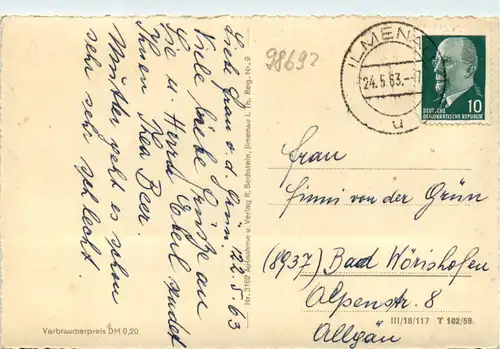 22.5.63
Lieb Frau v. d. Grün.
Viele, liebe Grüße an
Sie u. Herrn sendet
Ihnen Thea Beer.
Mutter geht es schon
sehr sehr schlecht.
Verbraucherpreis DM 0,20
Nr. 3162 Aufnahme u. Verlag R. Bechstein, Ilmenau i. Th. Reg. Nr. 9
98693
ILMENAU
24.5.63.-17
u
10
DEUTSCHE
DEMOKRATISCHE REPUBLIK
Frau
Finni von der Grün
(8937) Bad Wörishofen
Alpenstr. 8
Allgäu
III/18/117 T 102/59